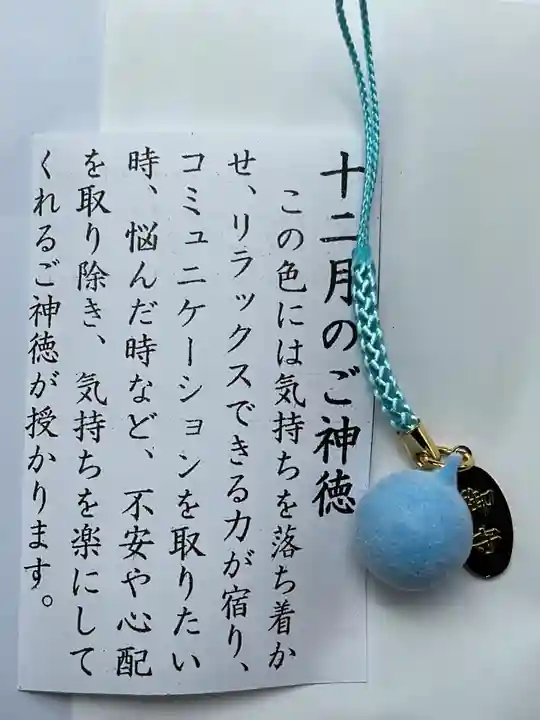 十二月のご神徳
この色には気持ちを落ち着か
せ、リラックスできる力が宿り、
コミュニケーションを取りたい
時、悩んだ時など、不安や心配
を取り除き、気持ちを楽にして
くれるご神徳が授かります。
御守